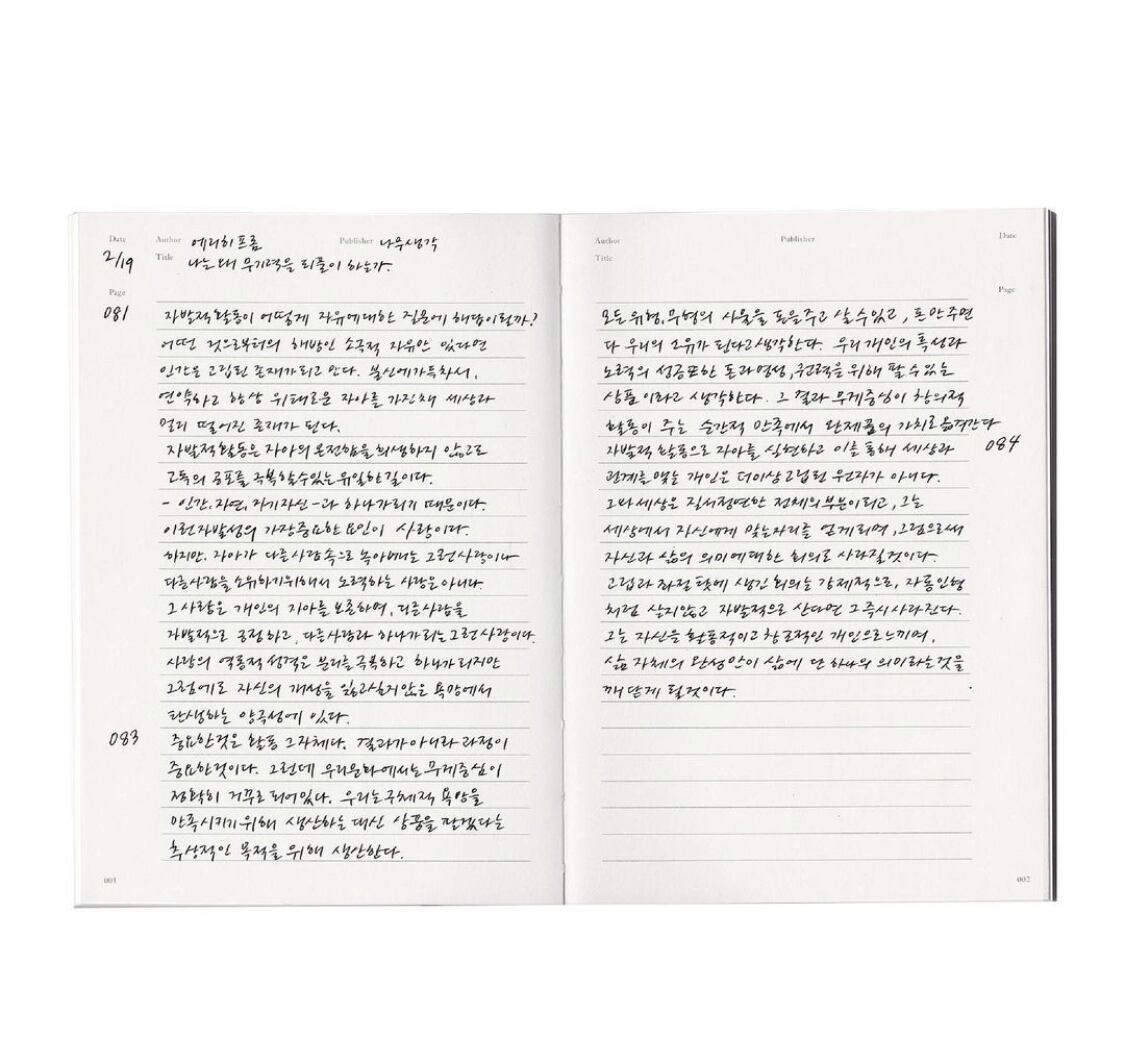 Date
Author 에리히 프롬
Publisher 나무생각
2/19
Title 나는 왜 무기력을 되풀이 하는가.
Page
081
자발적 활동이 어떻게 자유에 대한 질문에 해답이 될까?
어떤 것으로부터의 해방인 소극적 자유만 있다면
인간은 고립된 존재가 되고 만다. 불신에 가득차서,
연약하고 항상 위태로운 자아를 가진채 세상과
멀리 떨어진 존재가 된다.
자발적 활동은 자아의 온전함을 희생하지 않고도
고독의 공포를 극복할 수 있는 유일한 길이다.
- 인간, 자연, 자기 자신 - 과 하나가 되기 때문이다.
이런 자발성의 가장 중요한 요인이 사랑이다.
하지만, 자아가 다른 사람 속으로 녹아버리는 그런 사랑이나
다른 사람을 소유하기 위해서 노력하는 사랑은 아니다.
그 사랑은 개인의 자아를 보존하며, 다른 사람을
자발적으로 긍정하고, 다른 사람과 하나가 되는 그런 사랑이다.
사랑의 역동적 성격은 분리를 극복하고 하나가 되지만
그럼에도 자신의 개성을 잃고 싶지 않은 욕망에서
탄생하는 양극성에 있다.
083
중요한 것은 활동 그 자체다. 결과가 아니라 과정이
중요한 것이다. 그런데 우리 문화에서는 무게 중심이
정확히 거꾸로 되어있다. 우리는 구체적 욕망을
만족시키기 위해 생산하는 대신 상품을 판겠다는
추상적인 목적을 위해 생산한다.
001
Author
Publisher
Date
Title
Page
모든 유형, 무형의 사물을 돈을 주고 살 수 있고, 돈만 주면
다 우리의 소유가 된다고 생각한다. 우리 개인의 특성과
노력의 성공 또한 돈과 명성, 권력을 위해 팔 수 있는
상품이라고 생각한다. 그 결과 무게 중심이 창의적
활동이 주는 순간적 만족에서 완제품의 가치로 옮겨간다
084
자발적 활동으로 자아를 실현하고 이를 통해 세상과
관계를 맺는 개인은 더이상 고립된 원자가 아니다.
그와 세상은 질서정연한 전체의 부분이 되고, 그는
세상에서 자신에게 맞는 자리를 얻게 되며, 그럼으로써
자신과 삶의 의미에 대한 회의도 사라질 것이다.
고립과 좌절 탓에 생긴 회의는 강제적으로, 자동인형
처럼 살지 않고 자발적으로 산다면 그 즉시 사라진다.
그는 자신을 활동적이고 창조적인 개인으로 느끼며,
삶 자체의 완성만이 삶에 단 하나의 의미라는 것을
깨닫게 될 것이다.
002